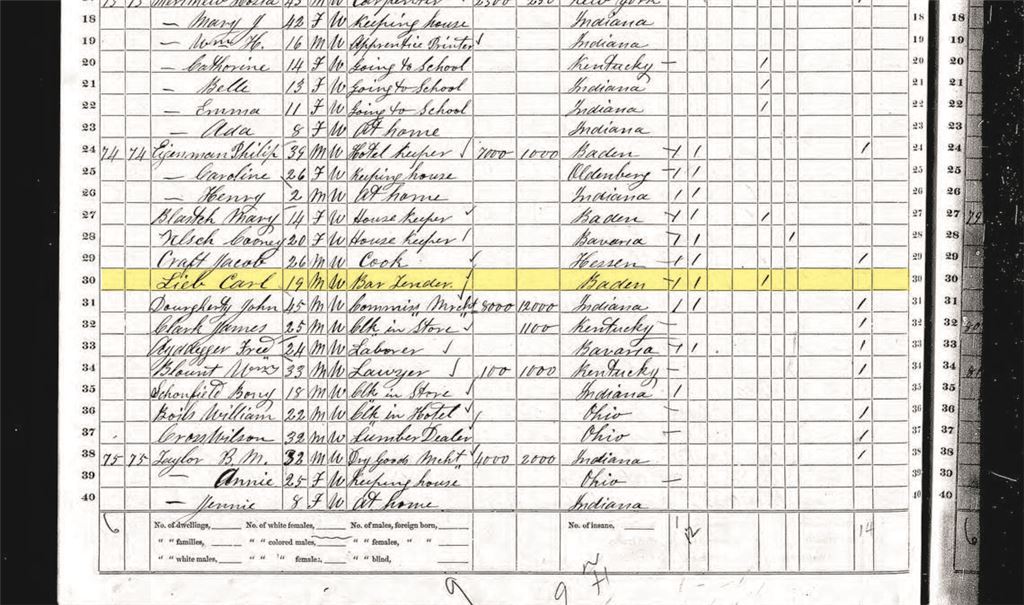 15 15 45 M W Carpenter 2500 250 New York
18 — Mary J 42 F W Keeping house Indiana 18
19 — Wm H. 16 M W Apprentice Printer Indiana 19
20 — Catharine 14 F W Going to School Kentucky — 1 20
21 — Belle 13 F W Going to School Indiana 1 21
22 — Emma 11 F W Going to School Indiana 1 22
23 — Ada 8 F W At home Indiana 23
24 74 74 Eisenman Philip 39 M W Hotel Keeper 7000 1000 Baden 1 1 1 24
25 — Caroline 26 F W Keeping house Oldenberg 1 1 25
26 — Henry 2 M W At home Indiana 1 1 26
27 Mary 14 F W House Keeper Baden 1 1 1 27
28 20 F W House Keeper Bavaria 1 1 1 28
29 Craft Jacob 26 M W Cook Hessen 1 1 1 29
30 Lieb Carl 19 M W Bar Tender. Baden 1 1 1 30
31 Dougherty John 45 M W Commiss Mrcht 8000 12000 Indiana 1 1 1 31
32 Clark James 25 M W Clk in Store 1100 Kentucky — 1 32
33 Fred 24 M W Laborer Bavaria 1 1 1 33
34 Blount Wm 33 M W Lawyer 100 1000 Kentucky — 1 34
35 Schonfield Bony 18 M W Clk in Store Indiana 1 35
36 William 22 M W Clk in Hotel Ohio — 1 36
37 Cross Wilson 32 M W Lumber Dealer Ohio — 1 37
38 75 75 Taylor B. M. 32 M W Dry Goods Mcht 4000 2000 Indiana 1 38
39 — Annie 25 F W Keeping house Ohio — 39
40 — Jennie 8 F W At home Indiana 40
6 No. of dwellings, No. of white females, No. of males, foreign born, No. of insane, 1 12 14
" " families, " " colored males, " " females, " "
" " white males, " " females, " " blind,
9 9